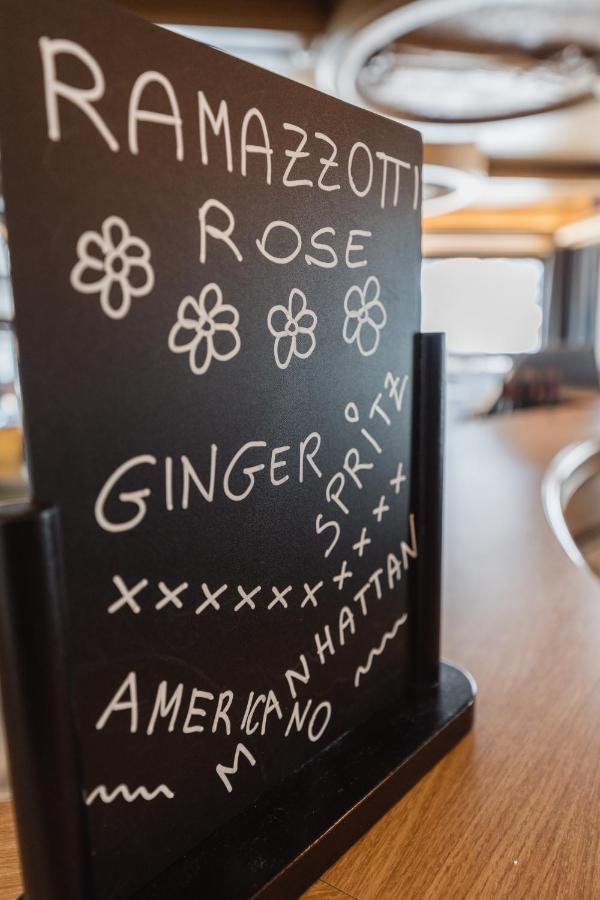 RAMAZZOTTI
ROSE
GINGER
SPRITZ
xxxxxxxxxxx
AMERICANO
MANHATTAN